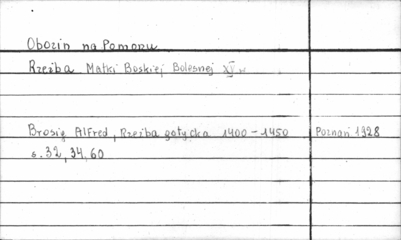 Obozin na Pomorzu
Rzeźba Matki Boskiej Bolesnej XV w
Brosig Alfred, Rzeźba gotycka 1400-1450 Poznań 1928
s. 32, 34, 60